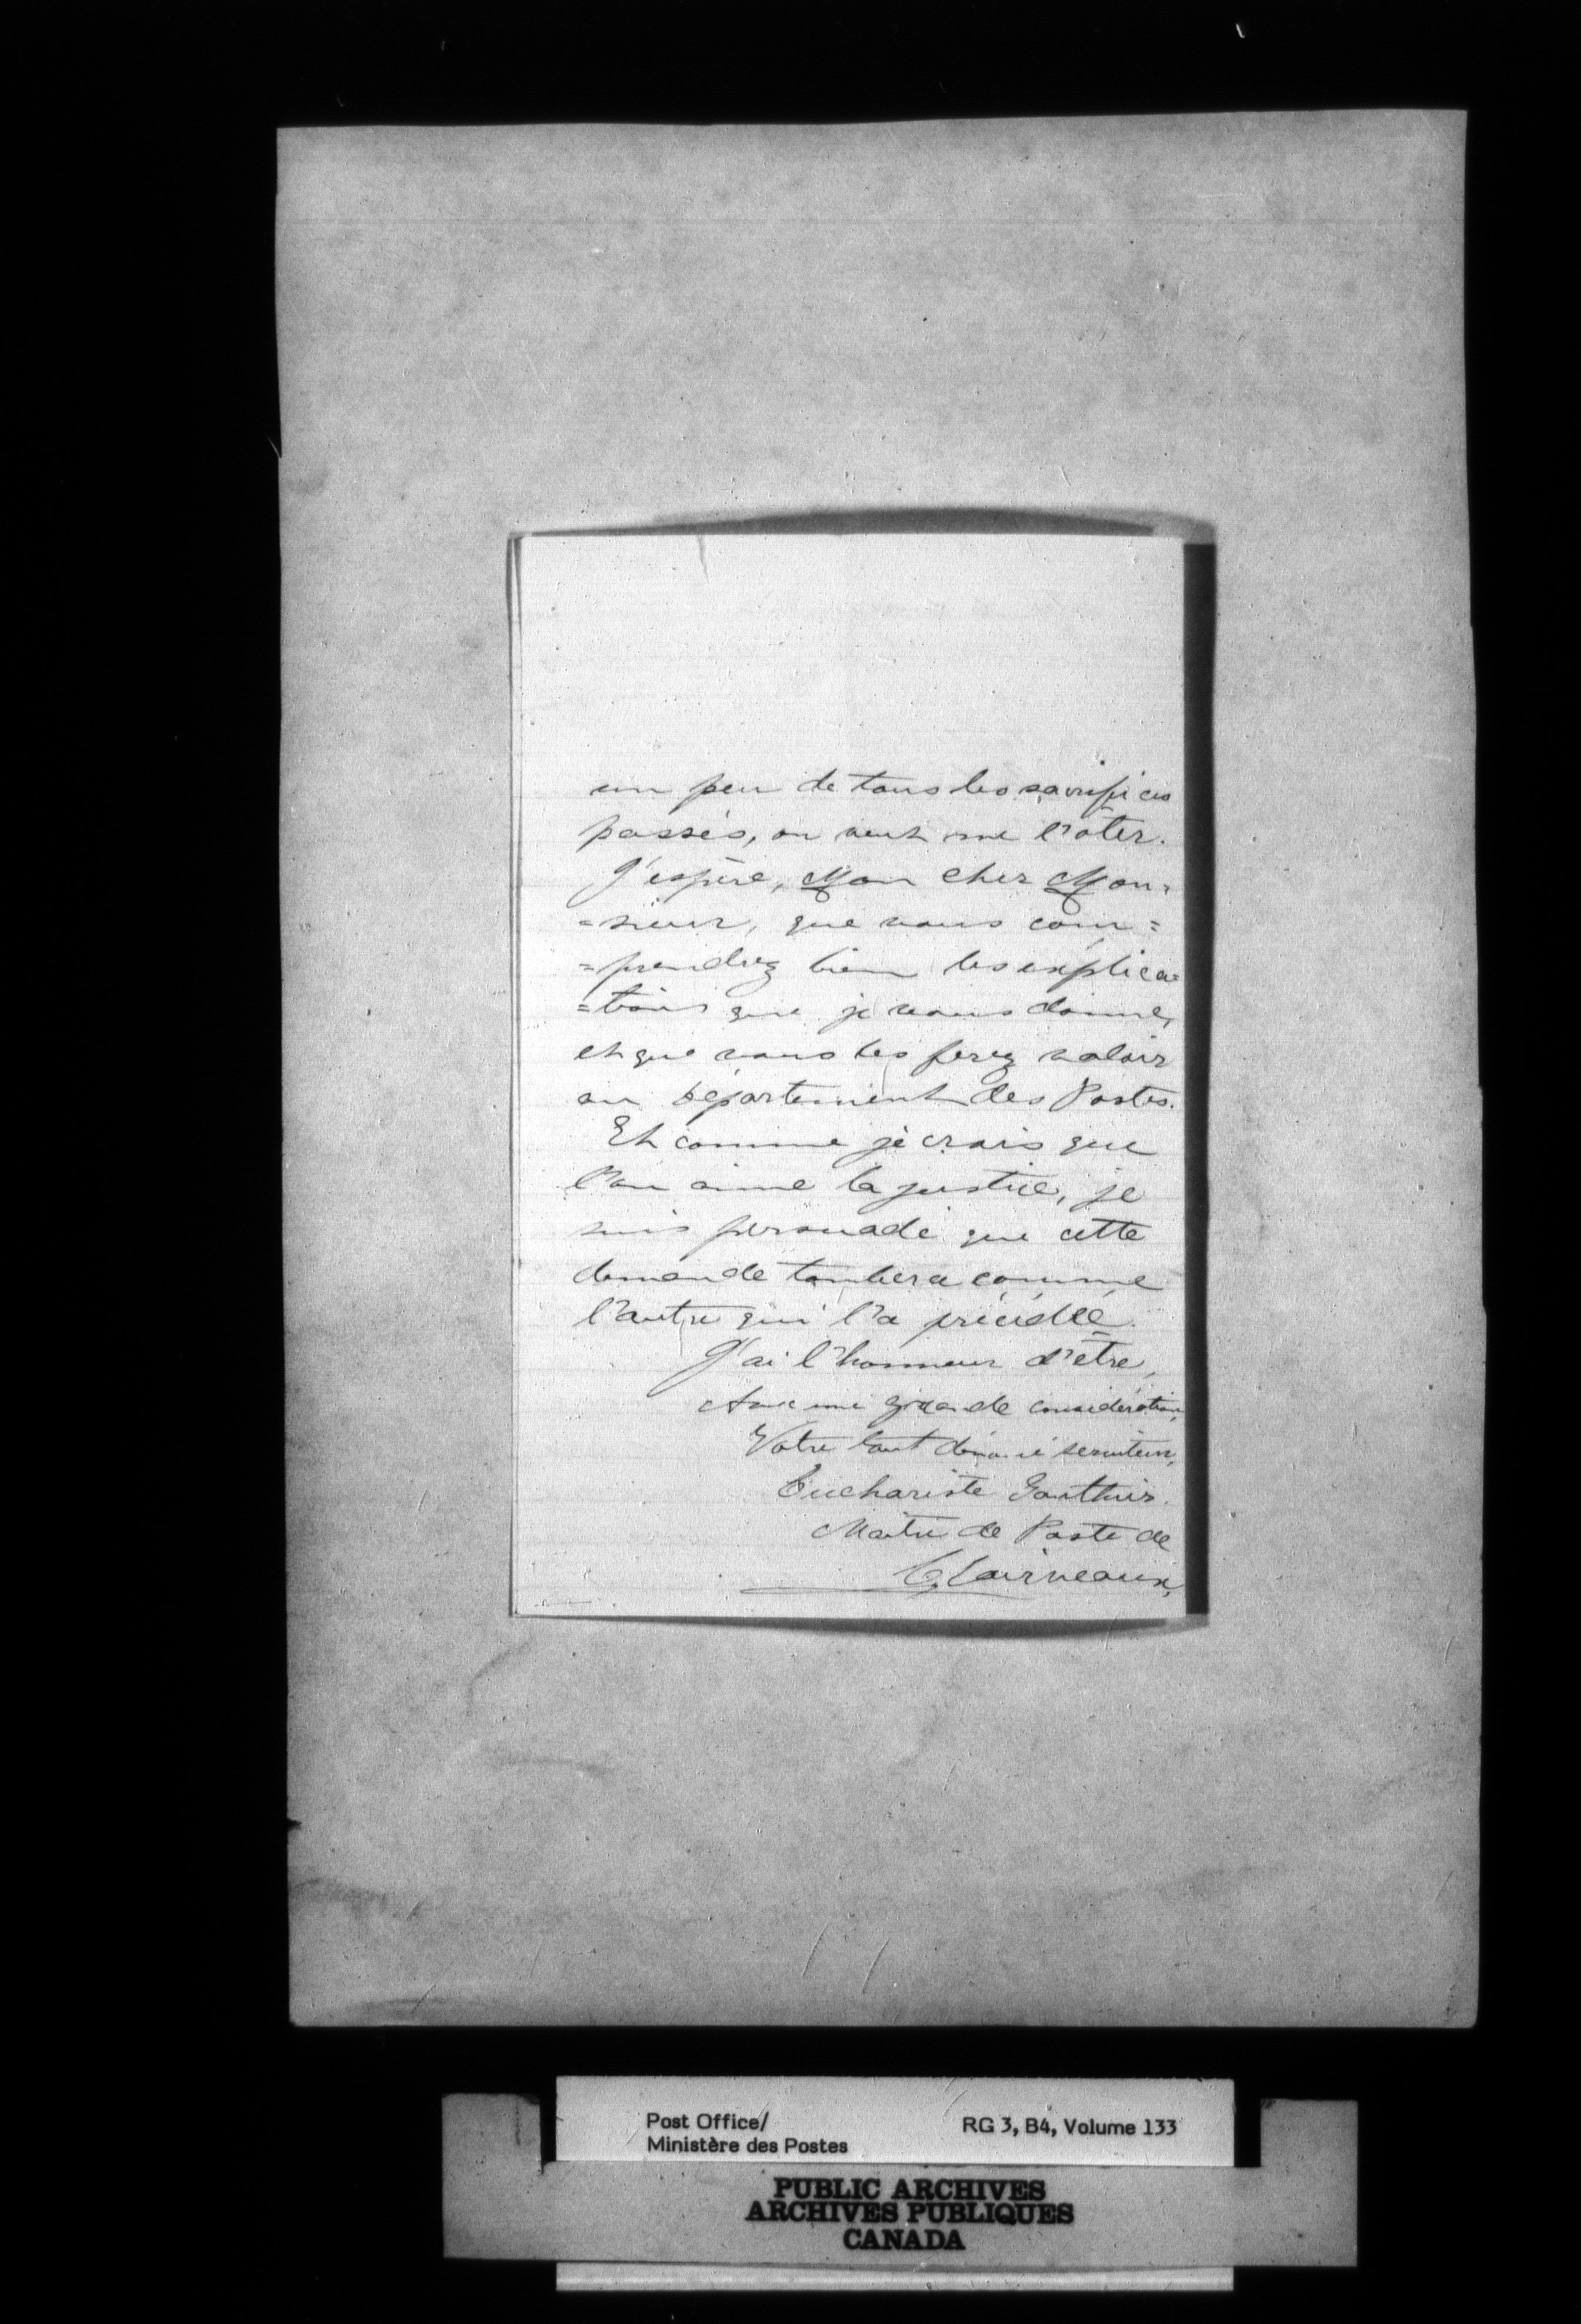 un peu de tous les sacrifices
passés, on veut me l'ôter.
J'espère, Mon cher Mon=
=sieur, que vous com=
=prendrez bien les explica=
=tions que je vous donne,
et que vous les ferez valoir
au Département des Postes.
Et comme je crois que
l'on aime la justice, je
suis persuadé que cette
demande tombera comme
l'autre qui l'a précédée.
J'ai l'honneur d'être,
Avec une grande considération,
Votre tout dévoué serviteur,
Euchariste Gauthier.
Maître de Poste de
Clairveaux,
Post Office/
Ministère des Postes
RG 3, B4, Volume 133
PUBLIC ARCHIVES
ARCHIVES PUBLIQUES
CANADA